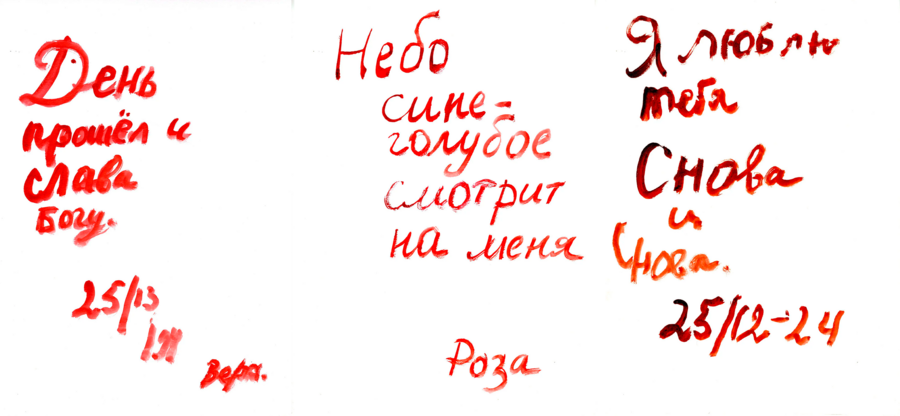 День
прошёл и
слава
Богу.
25/13
Вера.
Небо
сине-
голубое
смотрит
на меня
Роза
Я люблю
тебя
Снова
и
снова.
25/12-24